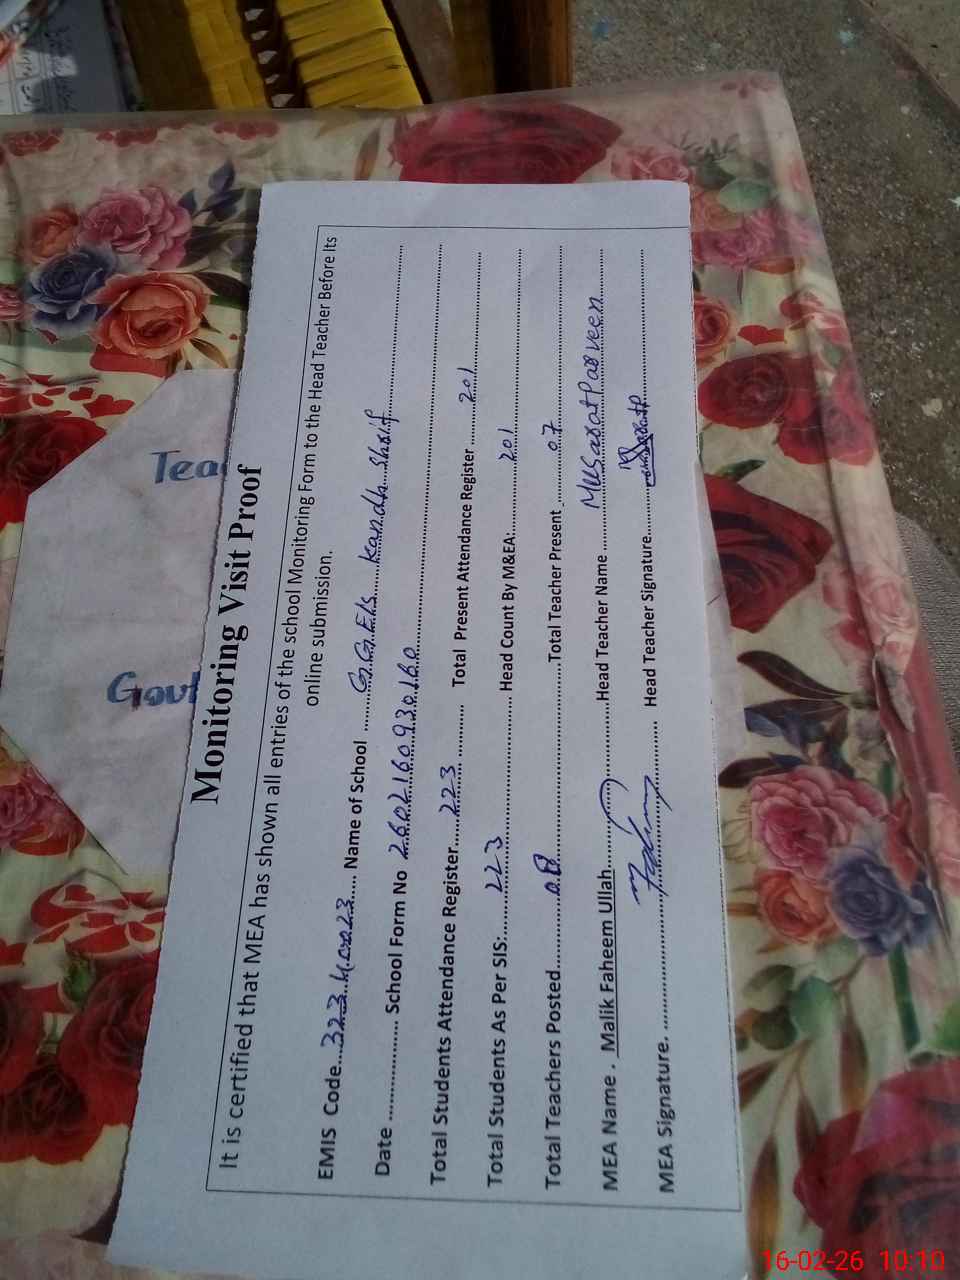 Tea
Govt
Monitoring Visit Proof
It is certified that MEA has shown all entries of the school Monitoring Form to the Head Teacher Before Its
online submission.
EMIS Code...32340023.... Name of School ........G.G.E/s Kandh Sharif
Date .................. School Form No 2602160930160
Total Students Attendance Register......223........... Total Present Attendance Register ........201
Total Students As Per SIS:.........223............ Head Count By M&EA:..........201
Total Teachers Posted............08............Total Teacher Present............07
MEA Name . Malik Faheem Ullah............Head Teacher Name ..........Musarat Parveen
MEA Signature. ............ Head Teacher Signature............
16-02-26 10:10